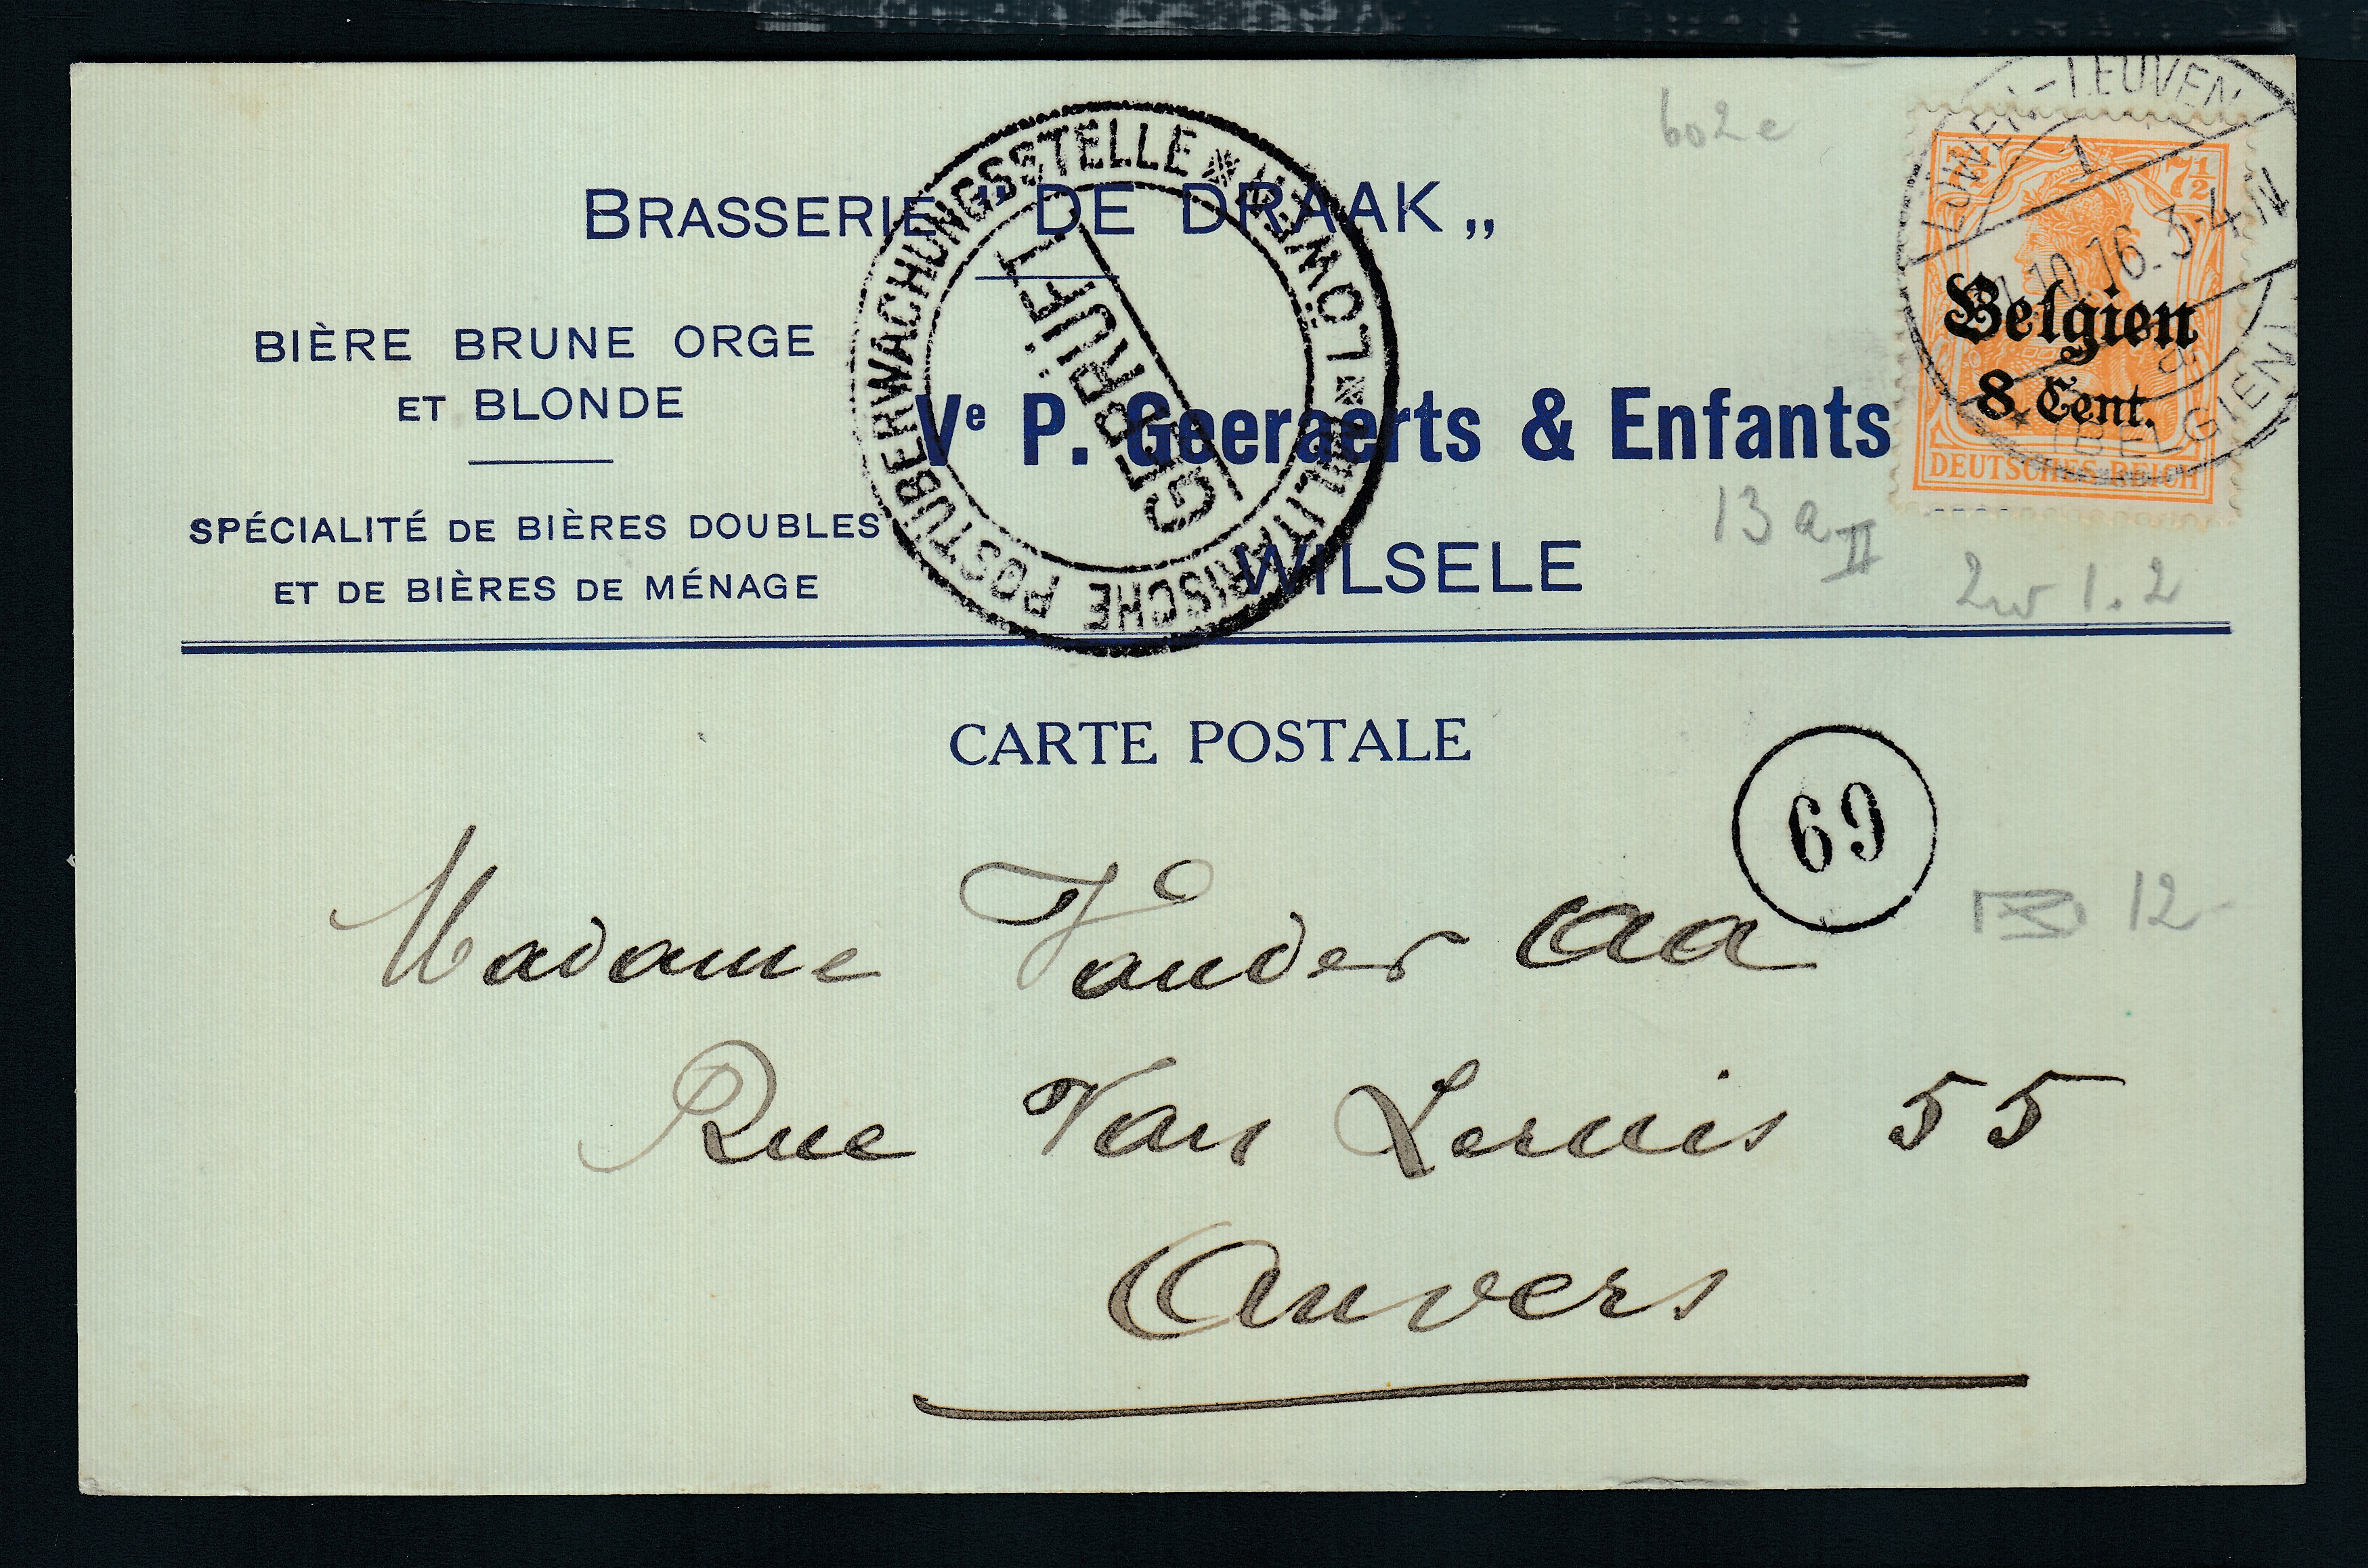 BRASSERIE " DE DRAAK „
BIÈRE BRUNE ORGE
ET BLONDE
SPÉCIALITÉ DE BIÈRES DOUBLES
ET DE BIÈRES DE MÉNAGE
Ve P. Geeraerts & Enfants
WILSELE
MILITÄRISCHE POSTÜBERWACHUNGSSTELLE * LÖWEN *
GEPRÜFT
LÖWEN - LEUVEN
1
10.16. 3-4 N
* (BELGIEN)
7½ 7½
Belgien
8 Cent.
DEUTSCHES REICH
602e
13 a II
1.2
CARTE POSTALE
69
12-
Madame Vander Aa
Rue Van Leruis 55
Anvers